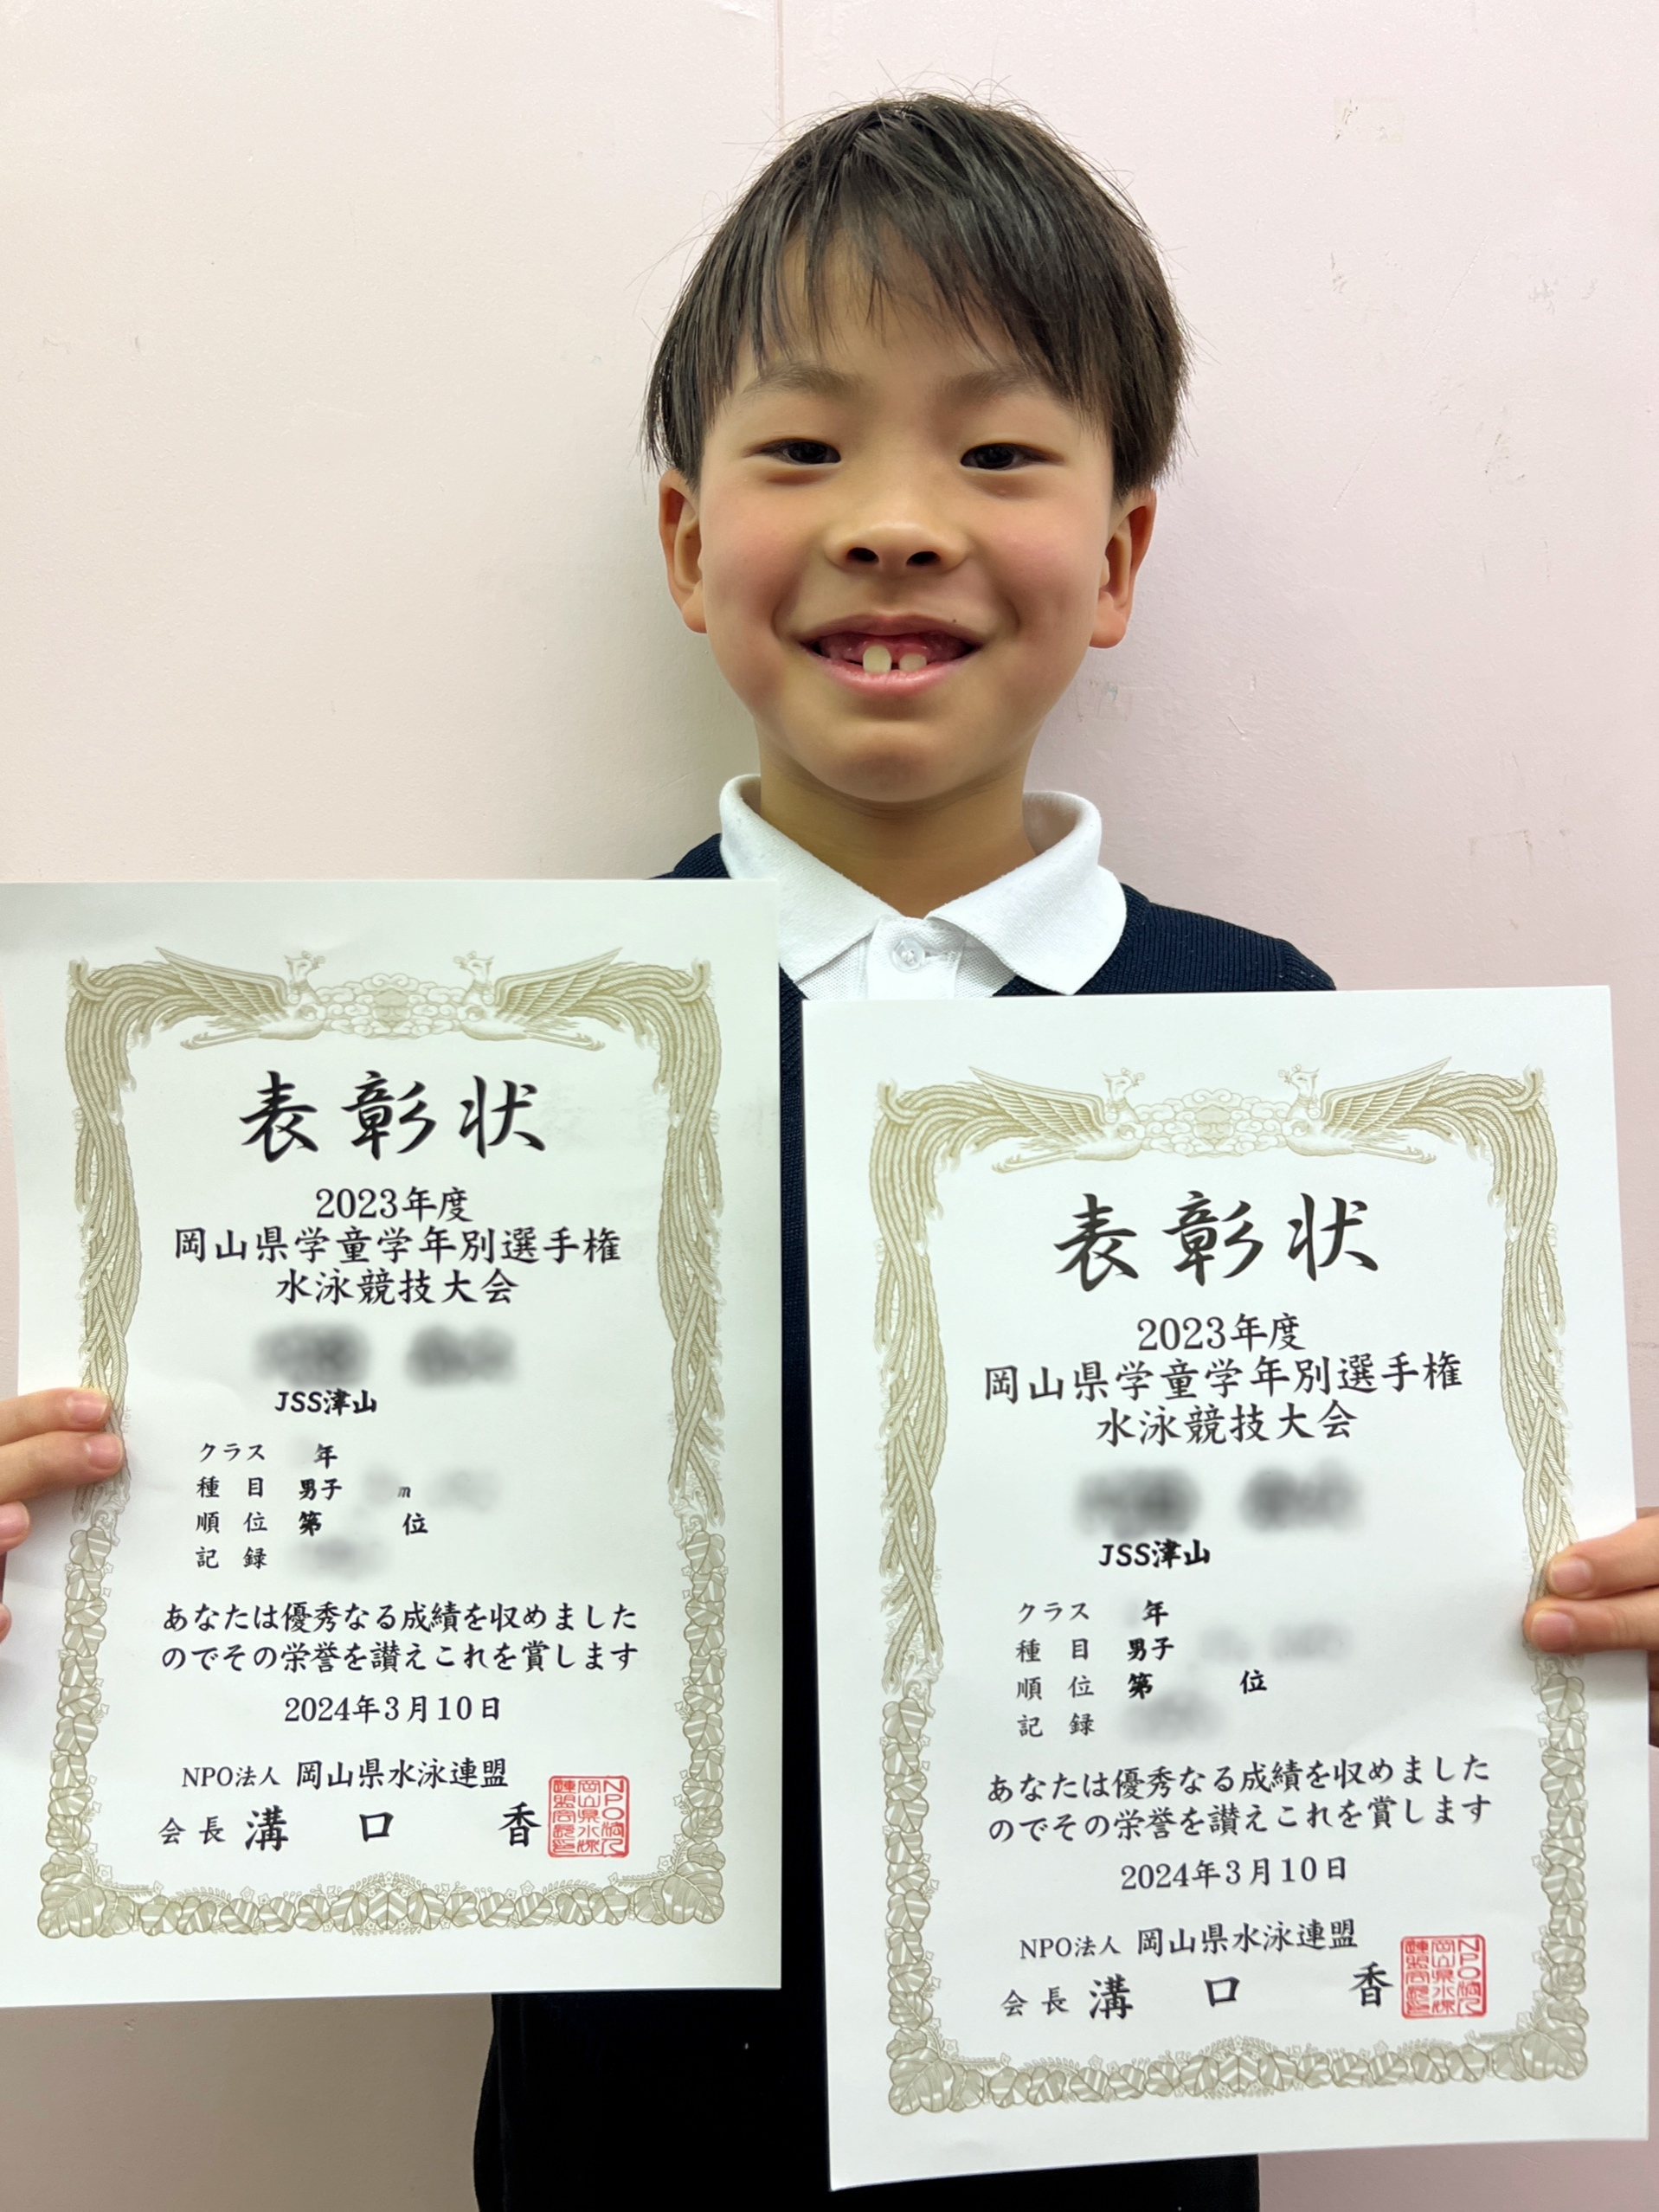 表彰状
2023年度
岡山県学童学年別選手権
水泳競技大会
JSS津山
クラス 年
種目 男子 m
順位 第 位
記録
あなたは優秀なる成績を収めました
のでその栄誉を讃えこれを賞します
2024年3月10日
NPO法人 岡山県水泳連盟
会長 溝口 香
表彰状
2023年度
岡山県学童学年別選手権
水泳競技大会
JSS津山
クラス 年
種目 男子
順位 第 位
記録
あなたは優秀なる成績を収めました
のでその栄誉を讃えこれを賞します
2024年3月10日
NPO法人 岡山県水泳連盟
会長 溝口 香